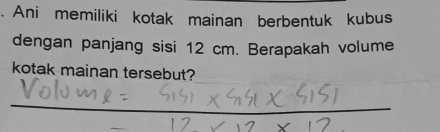 . Ani memiliki kotak mainan berbentuk kubus
dengan panjang sisi 12 cm. Berapakah volume
kotak mainan tersebut?
Volume = sisi x sisi x sisi
= 12 x 12 x 12